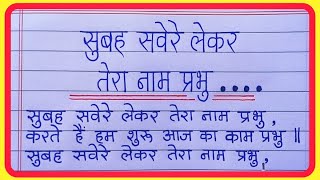 सुबह सवेरे लेकर
तेरा नाम प्रभु ....
सुबह सवेरे लेकर तेरा नाम प्रभु ,
करते हैं हम शुरू आज का काम प्रभु ॥
सुबह सवेरे लेकर तेरा नाम प्रभु ,